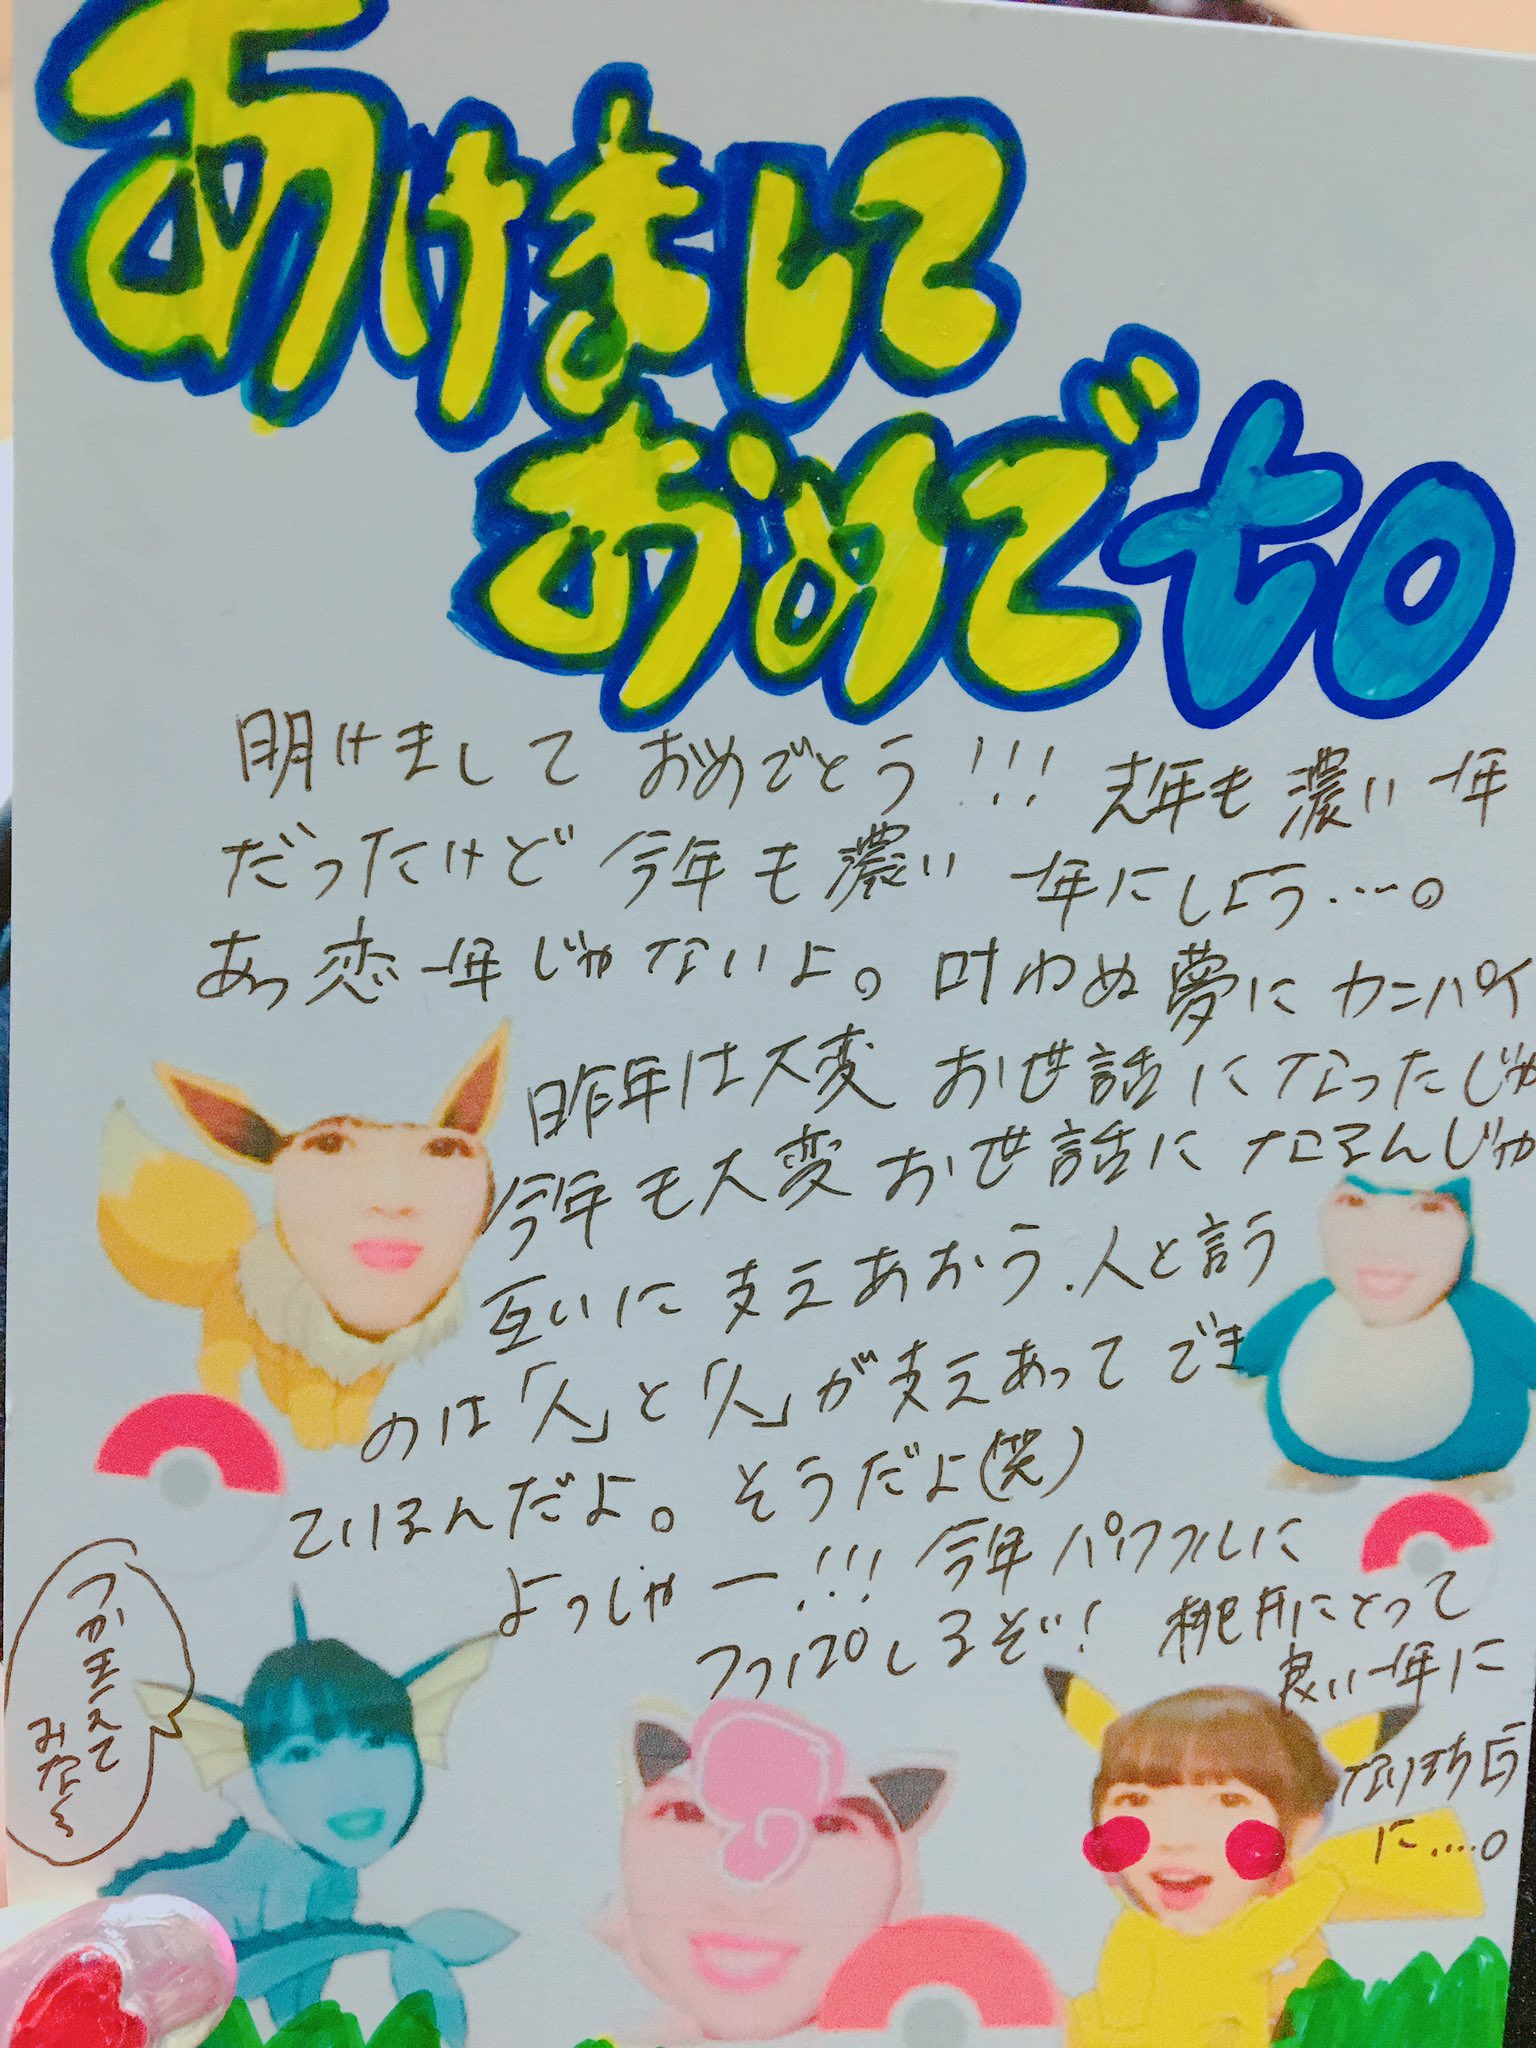 あけまして
おめでtO
明けまして おめでとう!!! 去年も 濃い 一年
だったけど 今年も濃い 一年にしよう….。
あっ恋一年じゃないよ。叶わぬ夢に カンパイ
昨年は大変 お世話になったじゃ
今年も大変お世話に なるんじゃ
互いに支えあおう.人と言う
のは「人」と「人」が支えあって でき
ているんだよ。そうだよ(笑)
よっしゃー!!! 今年 パワフルに
しるぞ! にとって
良い一年に
なりまち
に….。
つかまえて
みなよ